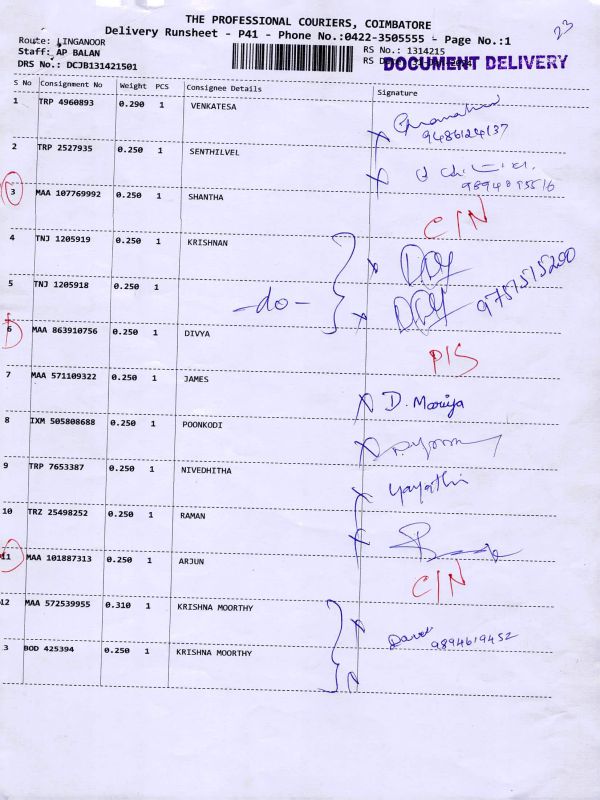 23
THE PROFESSIONAL COURIERS, COIMBATORE
Delivery Runsheet - P41 - Phone No.:0422-3505555 - Page No.:1
Route: LINGANOOR
RS No.: 1314215
Staff: AP BALAN
RS
DOCUMENT DELIVERY
DRS No.: DCJB131421501
S No Consignment No Weight PCS Consignee Details Signature
1 TRP 4960893 0.290 1 VENKATESA
9486124137
2 TRP 2527935 0.250 1 SENTHILVEL
3 MAA 107769992 0.250 1 SHANTHA
C/N
4 TNJ 1205919 0.250 1 KRISHNAN
5 TNJ 1205918 0.250 1 -do- 9751515200
6 MAA 863910756 0.250 1 DIVYA
P/S
7 MAA 571109322 0.250 1 JAMES D. Mooriya
8 IXM 505808688 0.250 1 POONKODI
9 TRP 7653387 0.250 1 NIVEDHITHA yayathi
10 TRZ 25498252 0.250 1 RAMAN
11 MAA 101887313 0.250 1 ARJUN
C/N
12 MAA 572539955 0.310 1 KRISHNA MOORTHY
9894619452
3 BOD 425394 0.250 1 KRISHNA MOORTHY